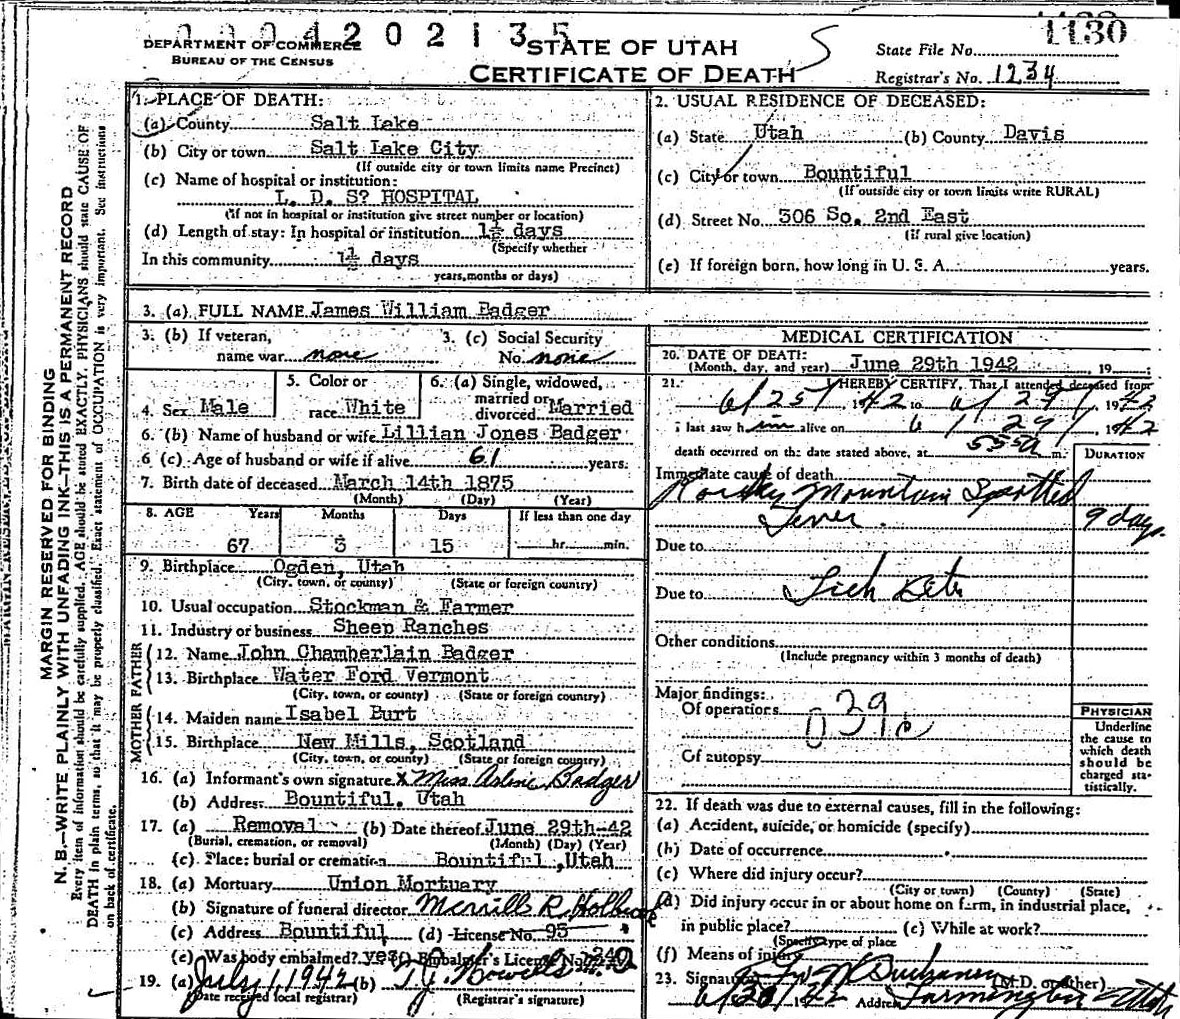 0 0 0 4 2 0 2 1 3 5
DEPARTMENT OF COMMERCE
BUREAU OF THE CENSUS
STATE OF UTAH
CERTIFICATE OF DEATH
State File No. 1130
Registrar's No. 1234
MARGIN RESERVED FOR BINDING
N. B.—WRITE PLAINLY WITH UNFADING INK—THIS IS A PERMANENT RECORD
Every item of information should be carefully supplied. AGE should be stated EXACTLY. PHYSICIANS should state CAUSE OF
DEATH in plain terms, so that it may be properly classified. Exact statement of OCCUPATION is very important. See instructions
on back of certificate.
1. PLACE OF DEATH:
(a) County Salt Lake
(b) City or town Salt Lake City
(If outside city or town limits name Precinct)
(c) Name of hospital or institution:
L. D. S? HOSPITAL
(If not in hospital or institution give street number or location)
(d) Length of stay: In hospital or institution 1½ days
(Specify whether
In this community 1½ days
years, months or days)
2. USUAL RESIDENCE OF DECEASED:
(a) State Utah (b) County Davis
(c) City or town Bountiful
(If outside city or town limits write RURAL)
(d) Street No. 306 So. 2nd East
(If rural give location)
(e) If foreign born, how long in U. S. A. years.
3. (a) FULL NAME James William Badger
3. (b) If veteran, name war none
3. (c) Social Security No. none
4. Sex Male
5. Color or race White
6. (a) Single, widowed, married or divorced Married
6. (b) Name of husband or wife Lillian Jones Badger
6 (c) Age of husband or wife if alive 61 years.
7. Birth date of deceased March 14th 1875
(Month) (Day) (Year)
8. AGE Years Months Days If less than one day
67 3 15 hr. min.
9. Birthplace Ogden, Utah
(City, town, or county) (State or foreign country)
10. Usual occupation Stockman & Farmer
11. Industry or business Sheep Ranches
FATHER
12. Name John Chamberlain Badger
13. Birthplace Water Ford Vermont
(City, town, or county) (State or foreign country)
MOTHER
14. Maiden name Isabel Burt
15. Birthplace New Mills, Scotland
(City, town, or county) (State or foreign country)
16. (a) Informant's own signature X Miss Arlene Badger
(b) Address Bountiful, Utah
17. (a) Removal (b) Date thereof June 29th-42
(Burial, cremation, or removal) (Month) (Day) (Year)
(c) Place: burial or cremation Bountiful, Utah
18. (a) Mortuary Union Mortuary
(b) Signature of funeral director Merrill R. Holbrook
(c) Address Bountiful (d) License No. 95
(e) Was body embalmed? yes (f) Embalmer's License No. 240
19. (a) July 1, 1942 (b) T. J. Howells
(Date received local registrar) (Registrar's signature)
MEDICAL CERTIFICATION
20. DATE OF DEATH: June 29th 1942, 19
(Month, day, and year)
21. I HEREBY CERTIFY, That I attended deceased from
6/25/ 1942 to 6/29/, 1942
I last saw him alive on 6/29/, 1942
death occurred on the date stated above, at 555a m.
DURATION
Immediate cause of death
Rocky Mountain Spotted
Fever. 9 days.
Due to
Due to Tick bite
Other conditions
(Include pregnancy within 3 months of death)
Major findings:
Of operations
39
Of autopsy
PHYSICIAN
Underline
the cause to
which death
should be
charged sta-
tistically.
22. If death was due to external causes, fill in the following:
(a) Accident, suicide, or homicide (specify)
(b) Date of occurrence
(c) Where did injury occur?
(City or town) (County) (State)
(d) Did injury occur in or about home on farm, in industrial place,
in public place? (e) While at work?
(Specify type of place
(f) Means of injury
23. Signature Buchanan (M.D. or other)
Address Farmington Utah